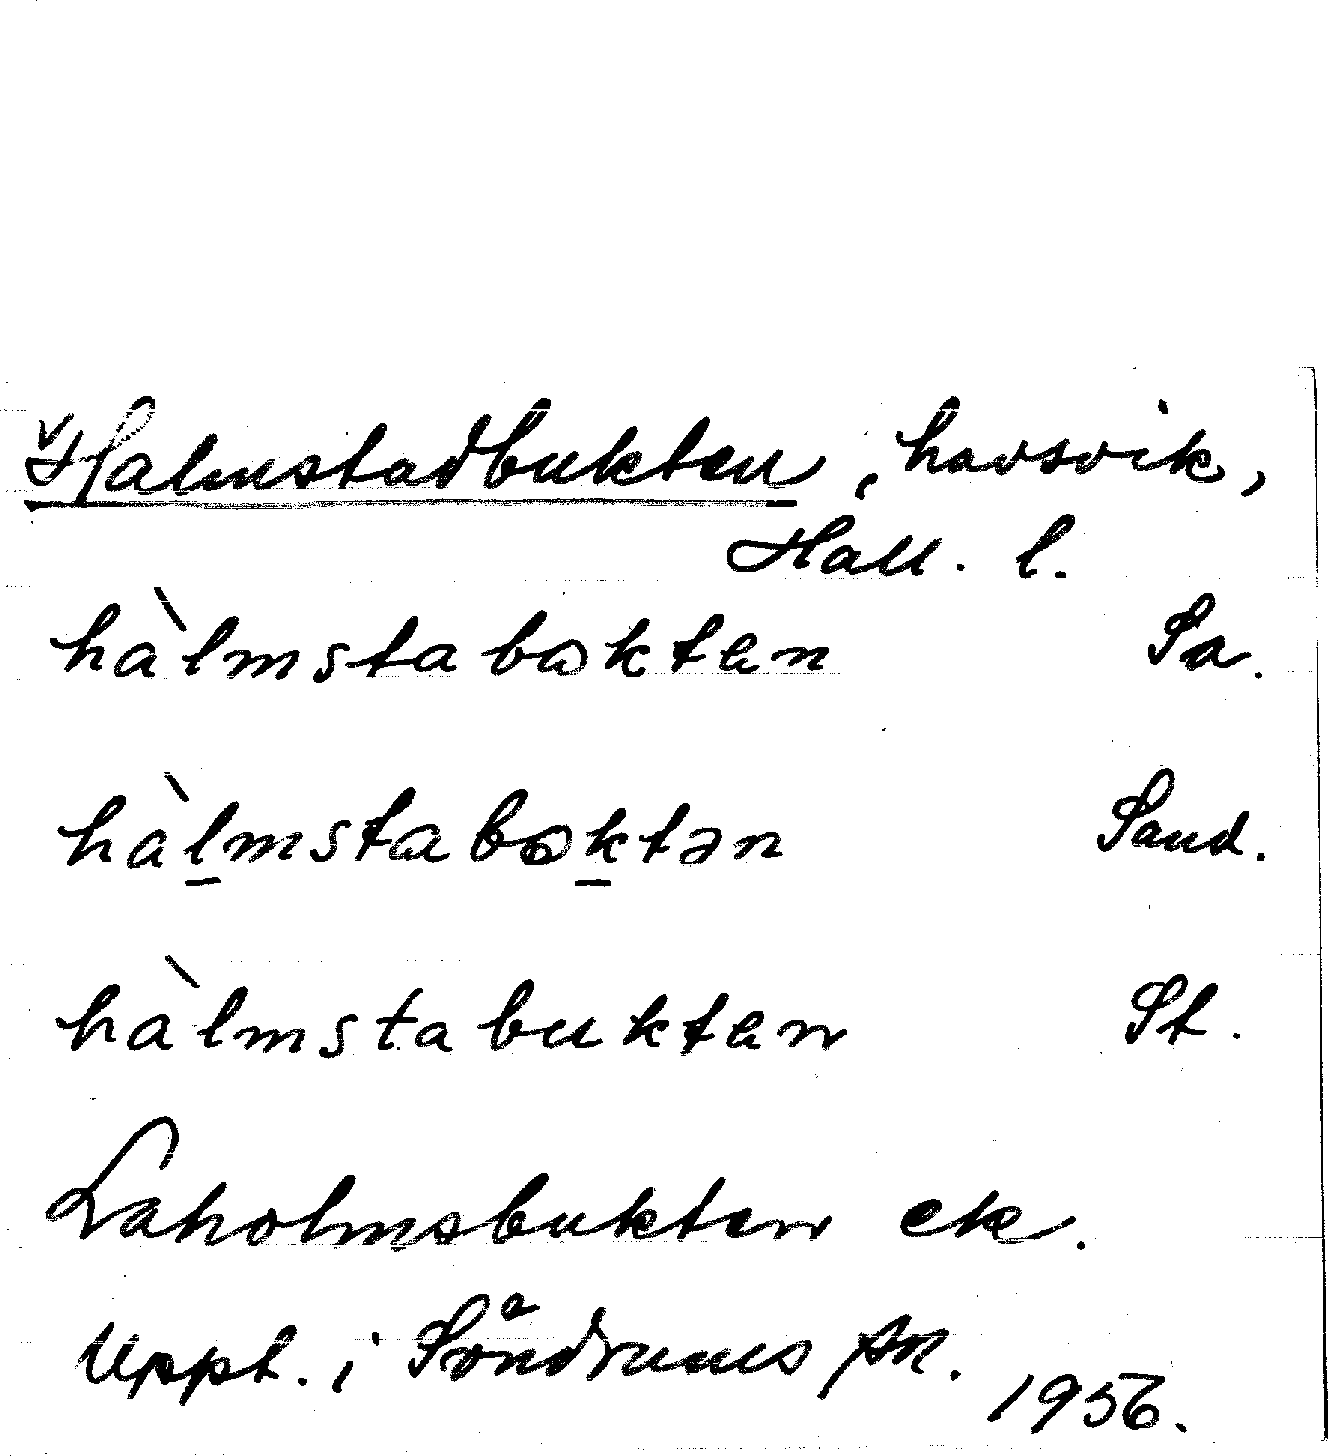 Halmstadbukten, havsvik,
Hall. l.
hàlmstabωktan Sa.
hàlmstabωktən Sand.
hàlmstabuktan St.
Laholmsbukten ek.
Uppt. i Söndrums sn.
1956.